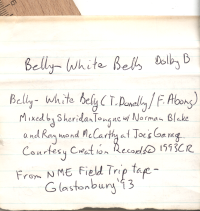 Belly - White Bells Dolby B
Belly - White Bely (T. Donelly / F. Abong)
Mixed by Sheridan Tongue w/ Norman Blake
and Raymond McCarthy at Joe's Garage
Courtesy Creation Records © 1993 CR
From NME Field Trip tape -
Glastonbury '93